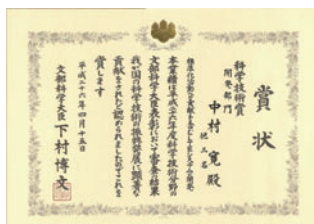 賞状
科学技術賞
開発部門
中村寛殿
他三名
本業績は平成二六年度科学技術分野の
文部科学大臣表彰において審査の結果
我が国の科学技術の振興発展に顕著な
貢献をされたと認められましたのでこれを
賞します
平成二十六年四月十五日
文部科学大臣 下村博文